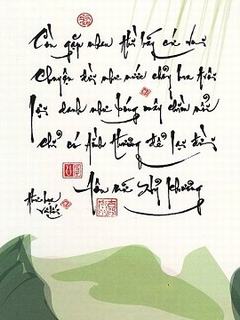 Còn gặp nhau thì hãy cứ vui
Chuyện đời như nước chảy hoa trôi
Lợi danh như bóng mây chìm nổi
Chỉ có tình thương để lại đời
Tôn Nữ Hỷ Khương
Thư họa